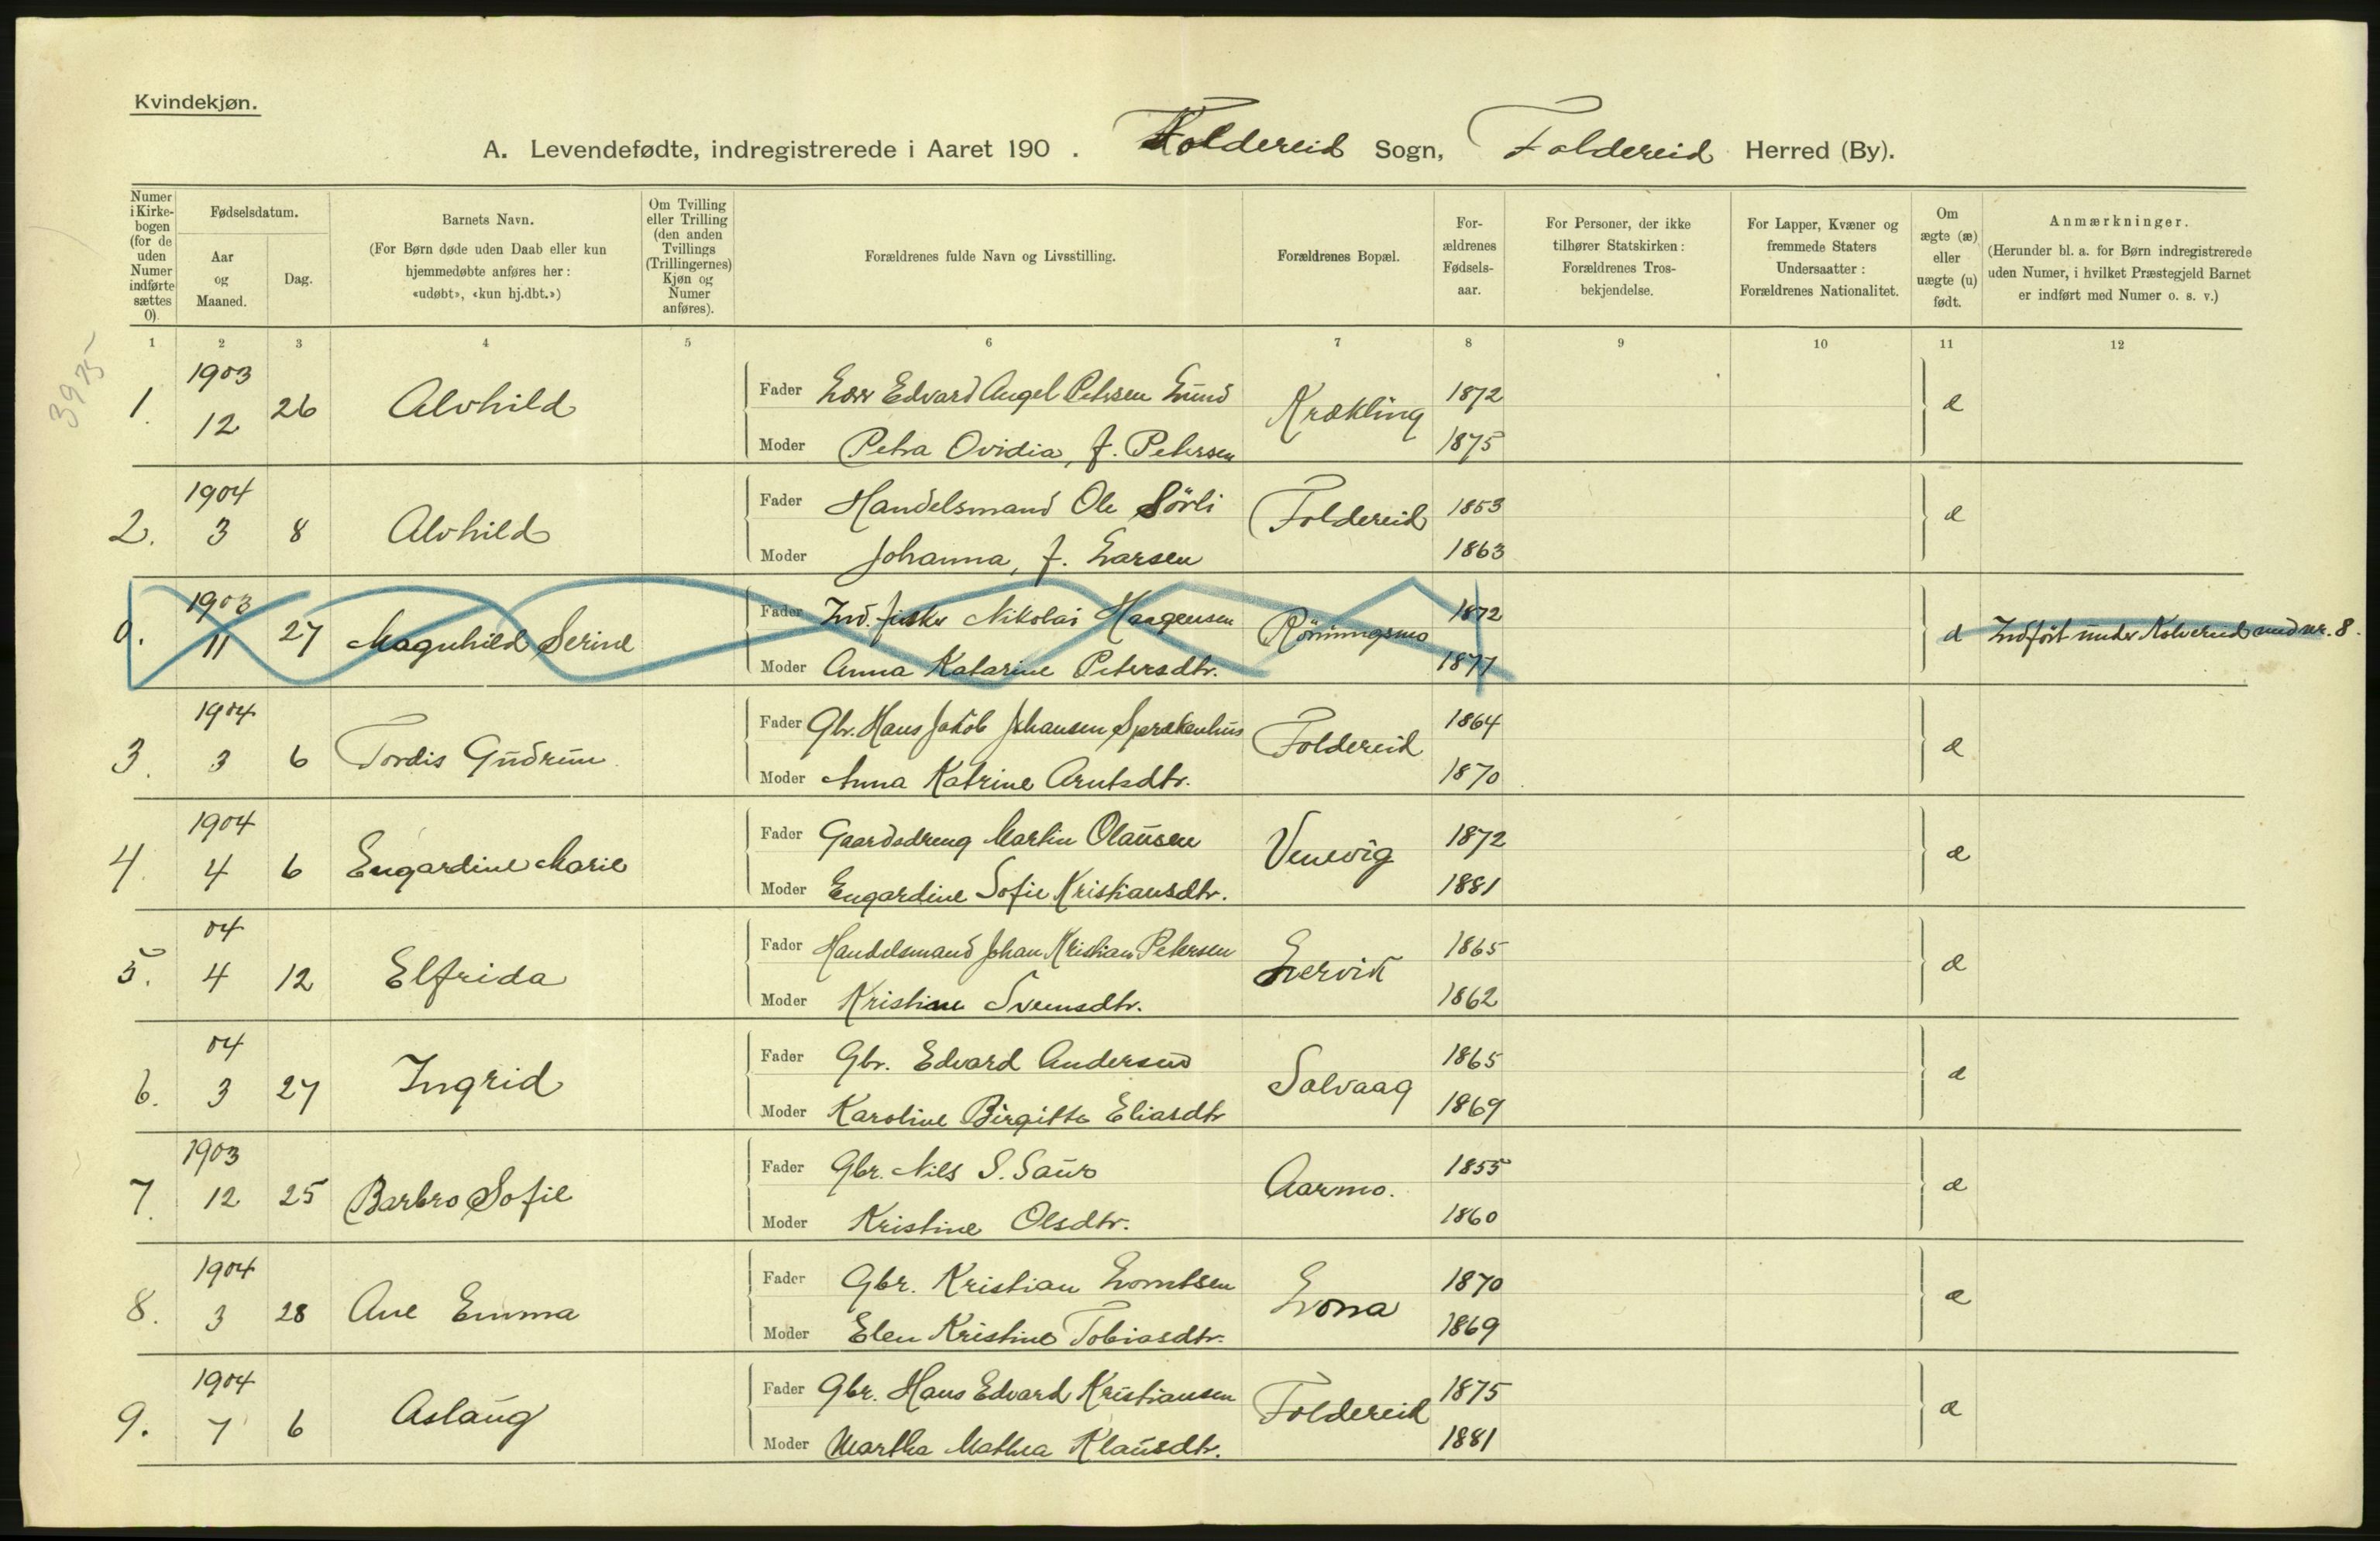 Kvindekjøn.
A. Levendefødte, indregistrerede i Aaret 190 . Foldereid Sogn, Foldereid Herred (By).
Numer i Kirkebogen (for de uden Numer indførte sættes 0).
Fødselsdatum.
Aar og Maaned.
Dag.
Barnets Navn.
(For Børn døde uden Daab eller kun hjemmedøbte anføres her: «udøbt», «kun hj.dbt.»)
Om Tvilling eller Trilling (den anden Tvillings (Trillingernes) Kjøn og Numer anføres).
Forældrenes fulde Navn og Livsstilling.
Forældrenes Bopæl.
For-ældrenes Fødsels-aar.
For Personer, der ikke tilhører Statskirken: Forældrenes Tros-bekjendelse.
For Lapper, Kvæner og fremmede Staters Undersaatter: Forældrenes Nationalitet.
Om ægte (æ) eller uægte (u) født.
Anmærkninger.
(Herunder bl. a. for Børn indregistrerede uden Numer, i hvilket Præstegjeld Barnet er indført med Numer o. s. v.)
1 2 3 4 5 6 7 8 9 10 11 12
3975
1. 1903 12 26 Alvhild Fader Edvard Angel Petersen Lund Krækling 1872 æ
Moder Petra Ovidia, f. Petersen 1875
2. 1904 3 8 Alvhild Fader Handelsmand Ole Sörli Foldereid 1853 æ
Moder Johanna, f. Larsen 1863
0. 1903 11 27 Magnhild Serine Fader Ind. fisker Nikolai Haagensen Rönningsmo 1872 æ Indfört under Kolvereid med nr. 8.
Moder Anna Katarine Petersdtr. 1877
3. 1904 3 6 Tordis Gudrun Fader Gbr. Hans Jakob Johansen Foldereid 1864 æ
Moder Anna Katrine Arntsdtr. 1870
4. 1904 4 6 Engardine Marie Fader Gaardsdreng Martin Olausen Venevig 1872 æ
Moder Engardine Sofie Kristiansdtr. 1881
5. 04 4 12 Elfrida Fader Handelsmand Johan Kristian Petersen Lervik 1865 æ
Moder Kristine Svensdtr. 1862
6. 04 3 27 Ingrid Fader Gbr. Edvard Andersen Salvaag 1865 æ
Moder Karoline Birgitte Eliasdtr 1869
7. 1903 12 25 Barbro Sofie Fader Gbr. Nils S. Saur Aarmo. 1855 æ
Moder Kristine Olsdtr. 1860
8. 1904 3 28 Ane Emma Fader Gbr. Kristian Lorntsen Lona 1870 æ
Moder Elen Kristine Tobiasdtr. 1869
9. 1904 7 6 Aslaug Fader Gbr. Hans Edvard Kristiansen Foldereid 1875 æ
Moder Martha Mathea Klausdtr. 1881